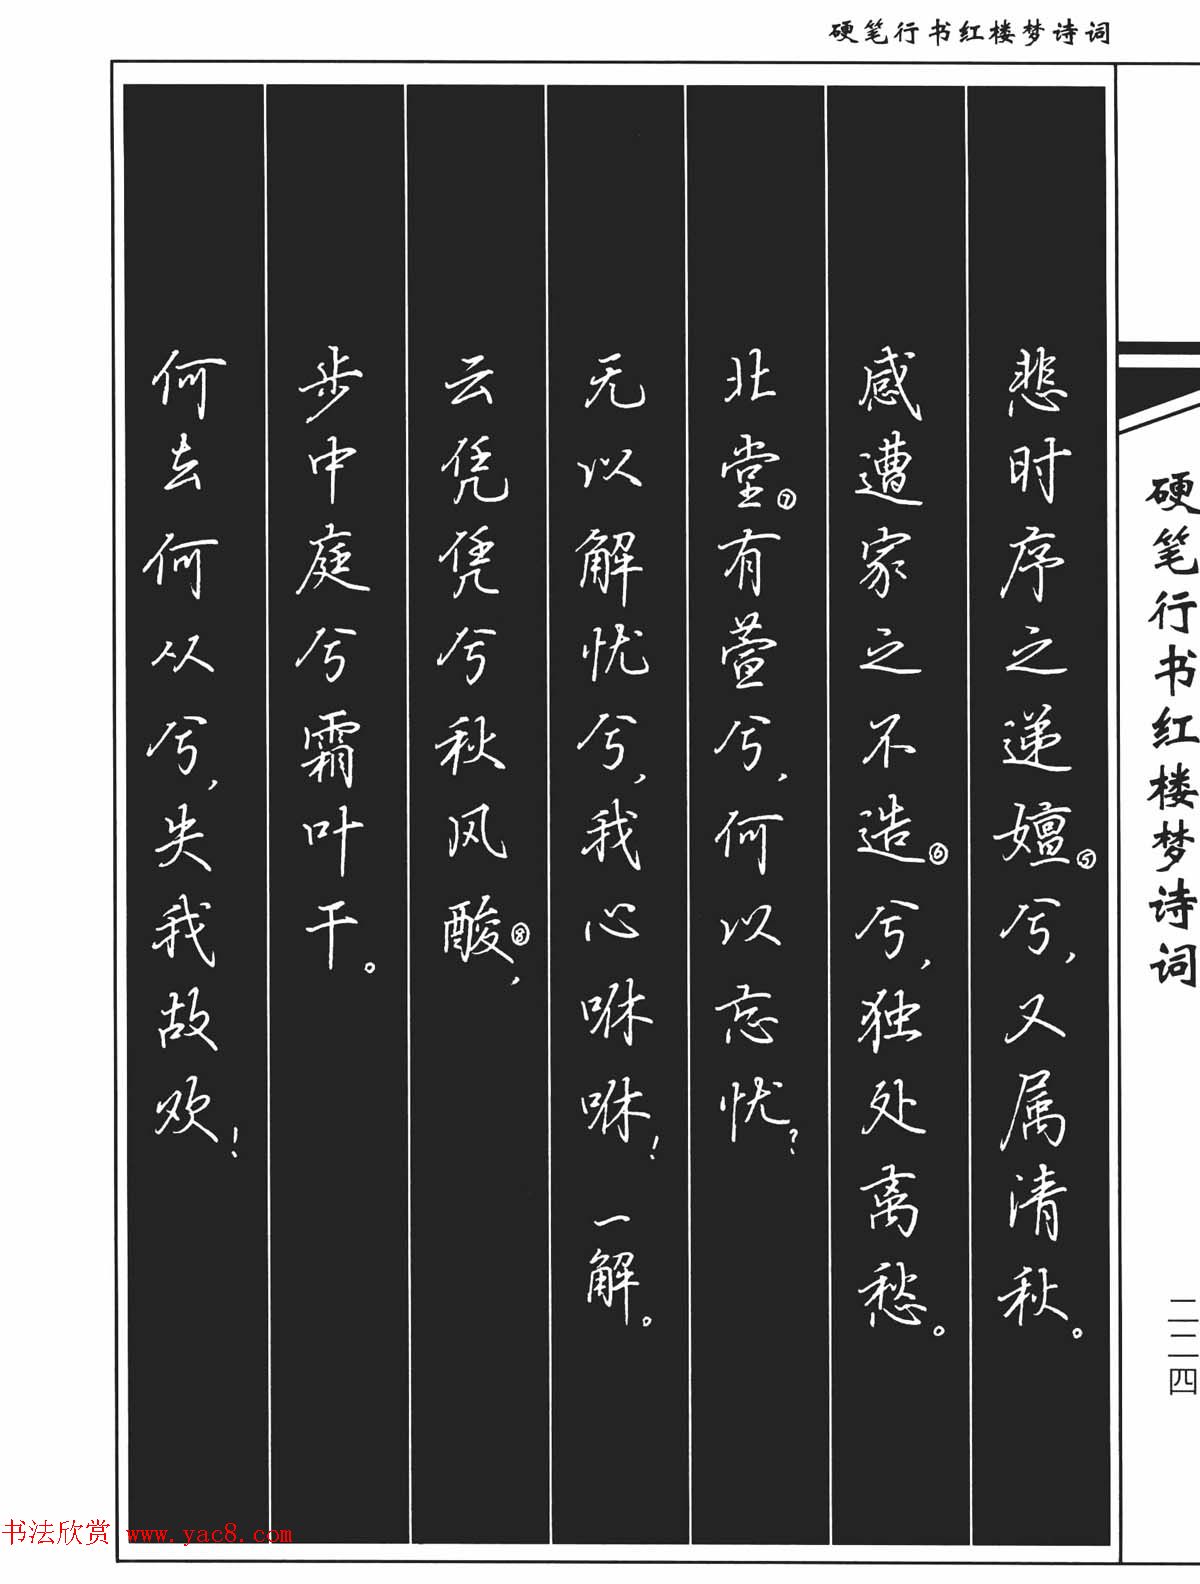 硬笔行书红楼梦诗词
悲时序之递嬗⑤兮，又属清秋。
感遭家之不造⑥兮，独处离愁。
北堂⑦有萱兮，何以忘忧？
无以解忧兮，我心咻咻！一解。
云凭凭兮秋风酸⑧，
步中庭兮霜叶干。
何去何从兮，失我故欢！
硬笔行书红楼梦诗词
二二四
书法欣赏 www.yac8.com